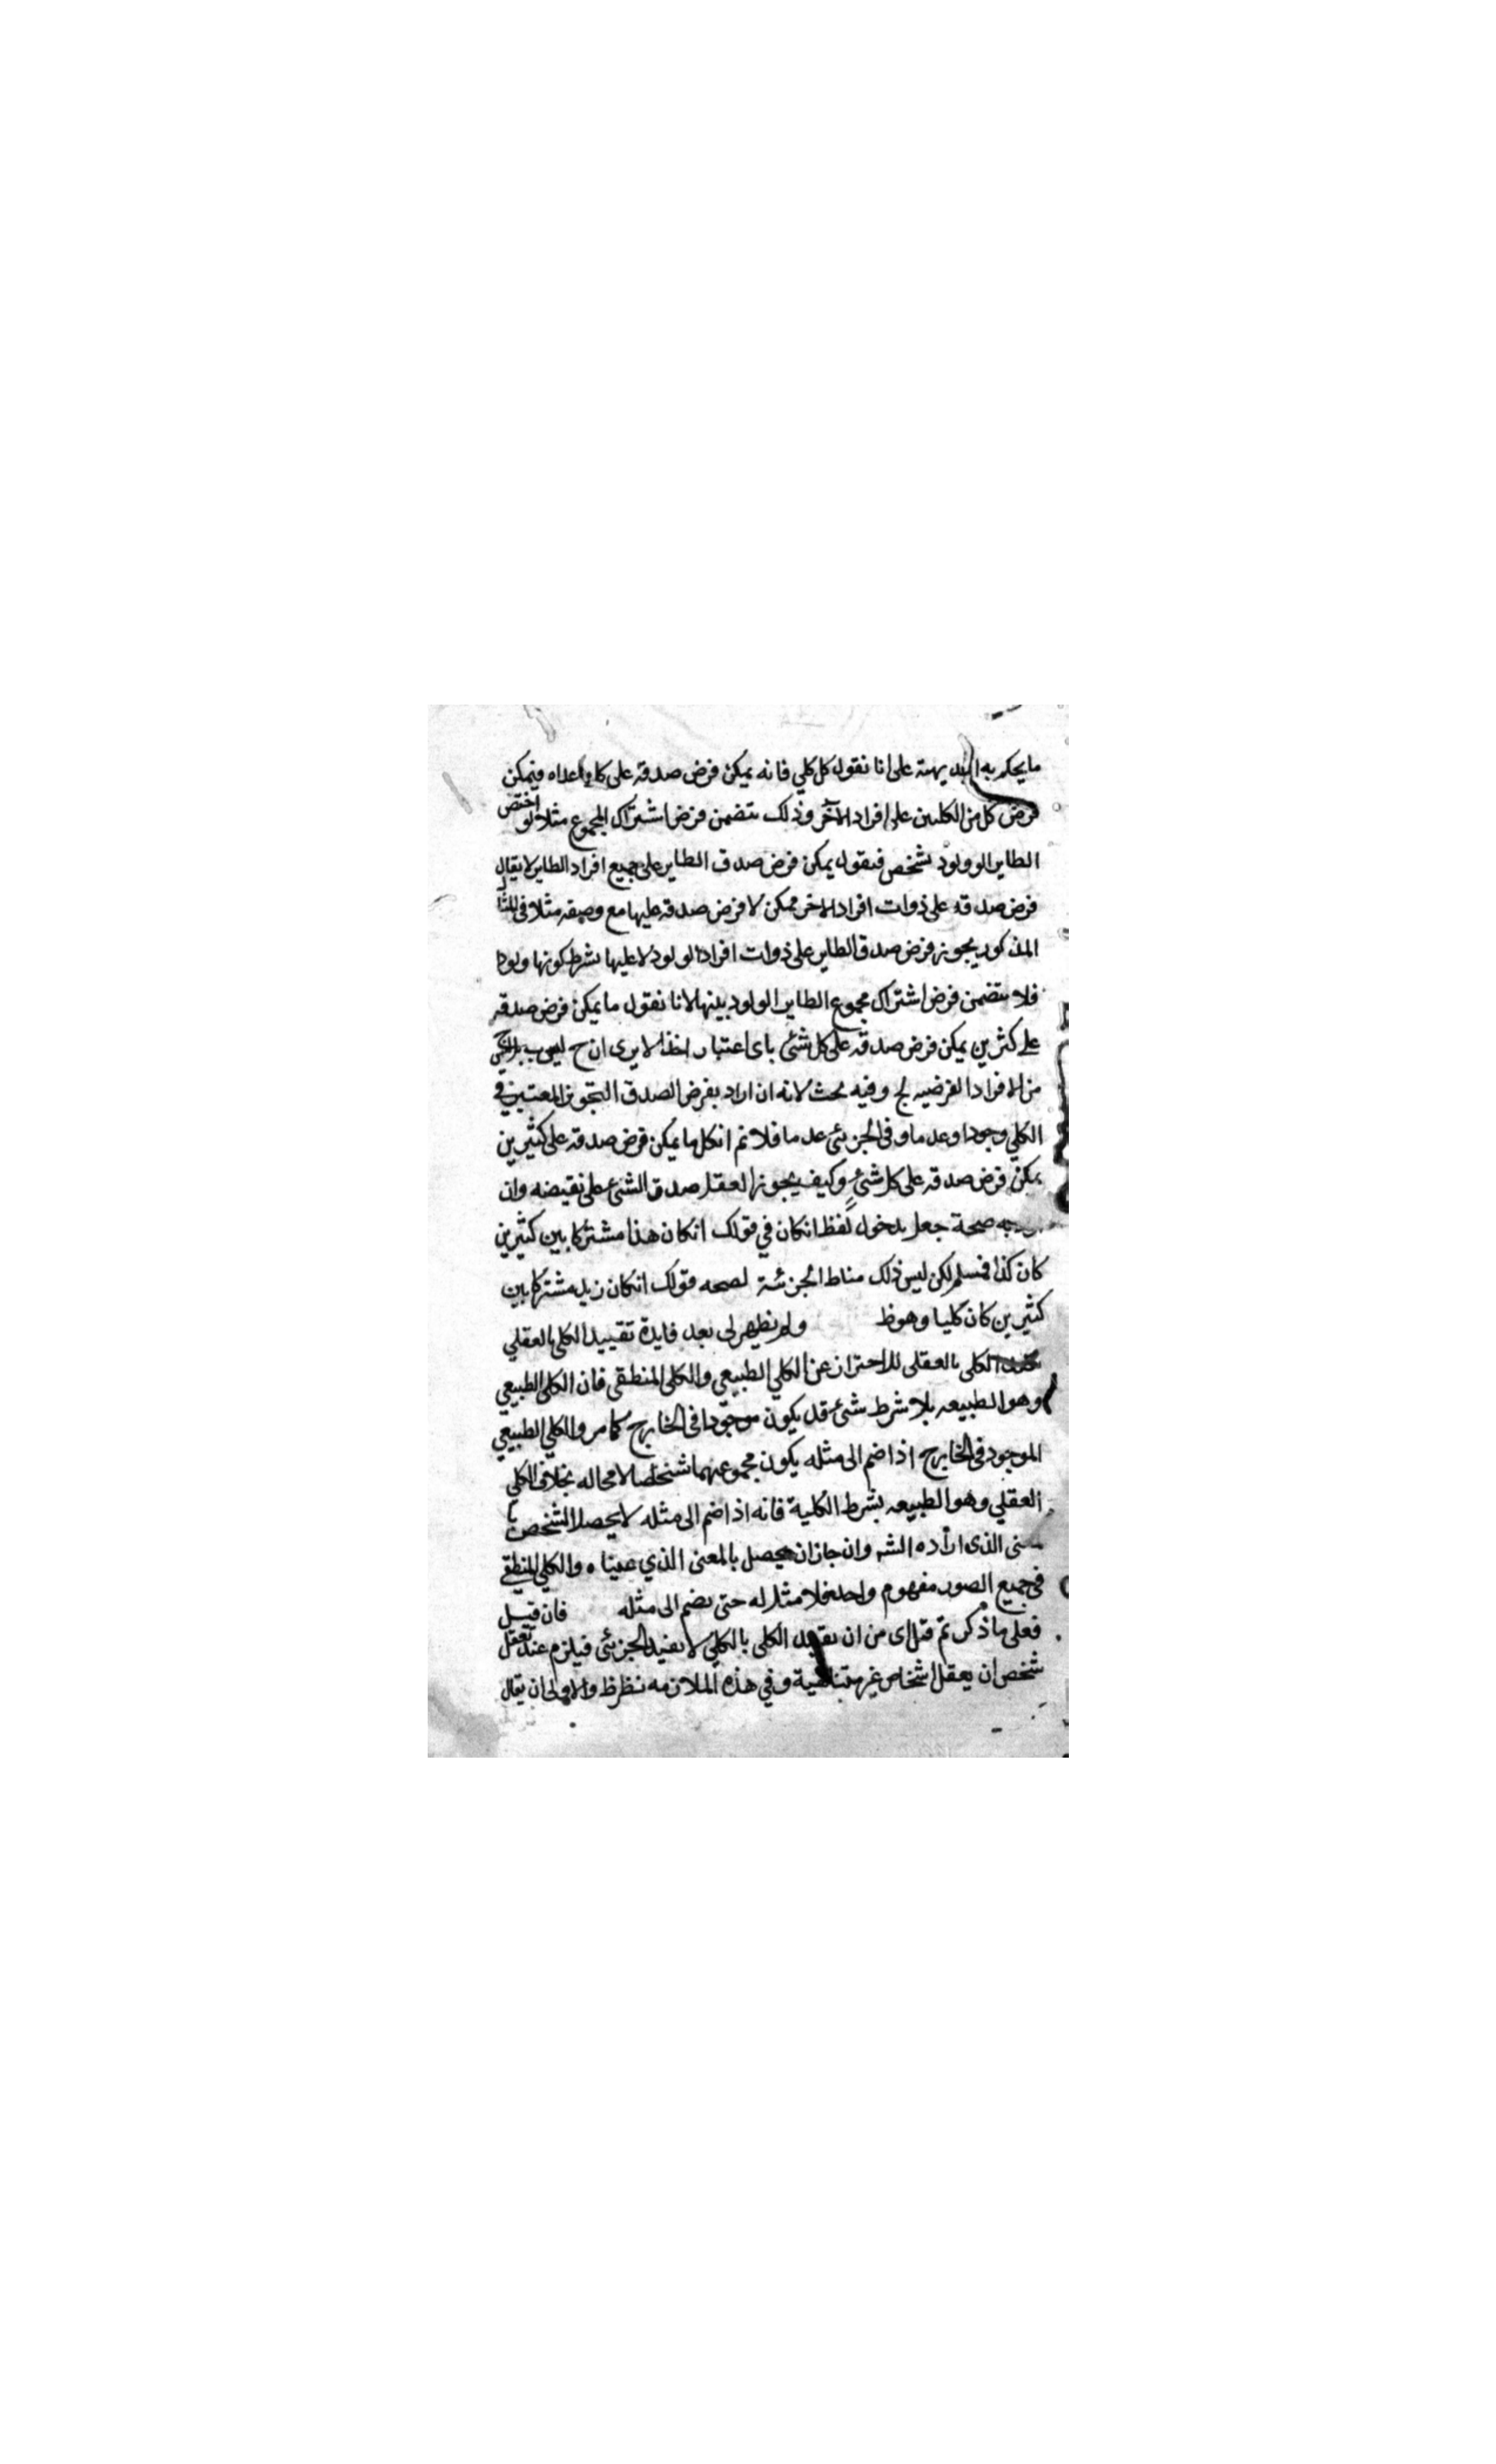 ما يحكم به البديهة على انا نقول كل كلي فانه يمكن فرض صدقه على كل ما عداه فيمكن
فرض كل من الكليين على افراد الآخر وذلك يتضمن فرض اشتراك المجموع مثلا لو اختص
الطاير الولود بشخص فنقول يمكن فرض صدق الطاير على جميع افراد الطاير لا يقال
فرض صدقه على ذوات افراد الاخر ممكن لا فرض صدقه عليها مع وصفه مثلا في المثال
المذكور يجوز فرض صدق الطاير على ذوات افراد الولود لا عليها بشرط كونها ولودا
فلا يتضمن فرض اشتراك مجموع الطاير الولود بينها لانا نقول ما يمكن فرض صدقه
على كثرين يمكن فرض صدقه على كل شئ باى اعتبار اخذ الا يرى ان ح
من الافراد الفرضيه لج وفيه بحث لانه ان اراد بفرض الصدق التجويز المعتبر في
الكلي وجودا وعدما وفى الجزئى عدما فلا نم انكل ما يمكن فرض صدقه على كثيرين
يمكن فرض صدقه على كل شئ وكيف يجوز العقل صدق الشئ على نقيضه وان
به صحة جعل بدخول لفظ انكان في قولك انكان هذا مشتركا بين كثيرين
كان كذا فمسلم لكن ليس ذلك مناط الجزئية لصحه قولك انكان زيد مشتركا بين
كثيرين كان كليا وهو ظ ولم يظهر لى بعد فايدة تقييد الكلى بالعقلي
الكلى بالعقلى للاحتراز عن الكلي الطبيعي والكلى المنطقى فان الكلى الطبيعي
وهو الطبيعه بلا شرط شئ قد يكون موجودا فى الخارج كما مر والكلي الطبيعي
الموجود فى الخارج اذا ضم الى مثله يكون مجموعهما شخصا لا محاله بخلاف الكلي
العقلي وهو الطبيعه بشرط الكلية فانه اذا ضم الى مثله لا يحصل الشخص با
لمعنى الذى اراده الشه وان جاز ان يحصل بالمعنى الذي عيناه والكلي المنطقي
فى جميع الصور مفهوم واحد فلا مثل له حتى يضم الى مثله فان قيل
فعلى ما ذكرتم قبل اى من ان تقييد الكلى بالكلي لا يفيد الجزئى فيلزم عند تعقل
شخص ان يعقل اشخاص غير متناهية وفي هذه الملازمه نظر ظ والاولى ان يقال